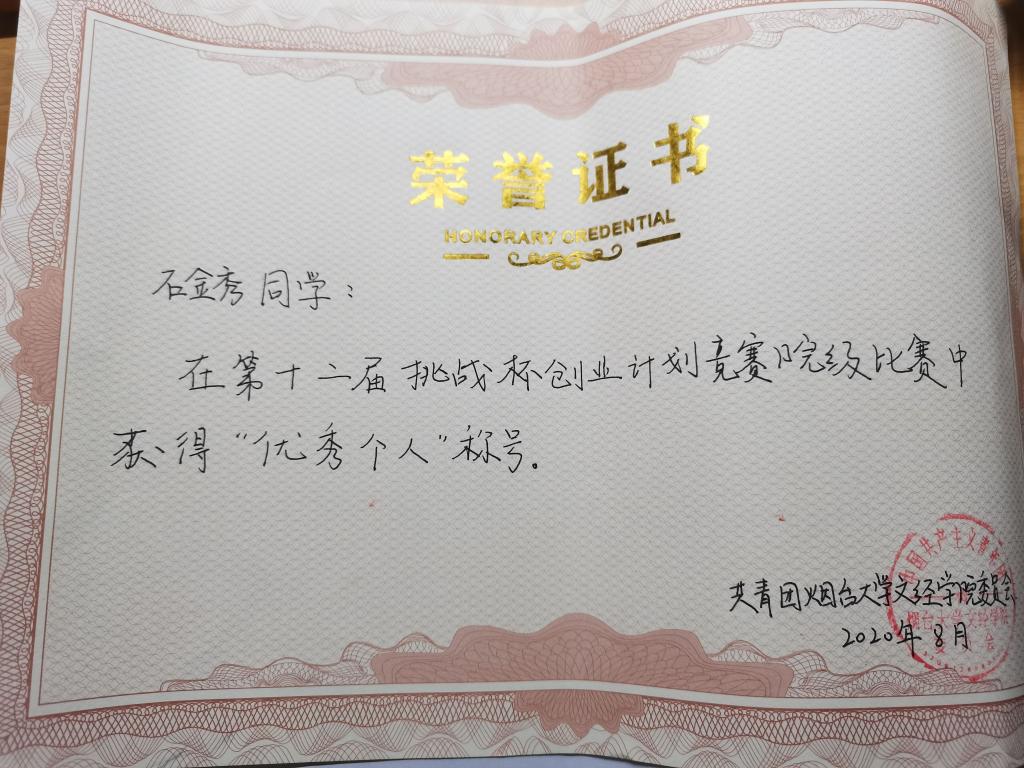 荣誉证书
HONORARY CREDENTIAL
石金秀同学：
在第十二届挑战杯创业计划竞赛院级比赛中
获得“优秀个人”称号。
共青团烟台大学文经学院委员会
2020年8月
中国共产主义青年团
烟台大学文经学院